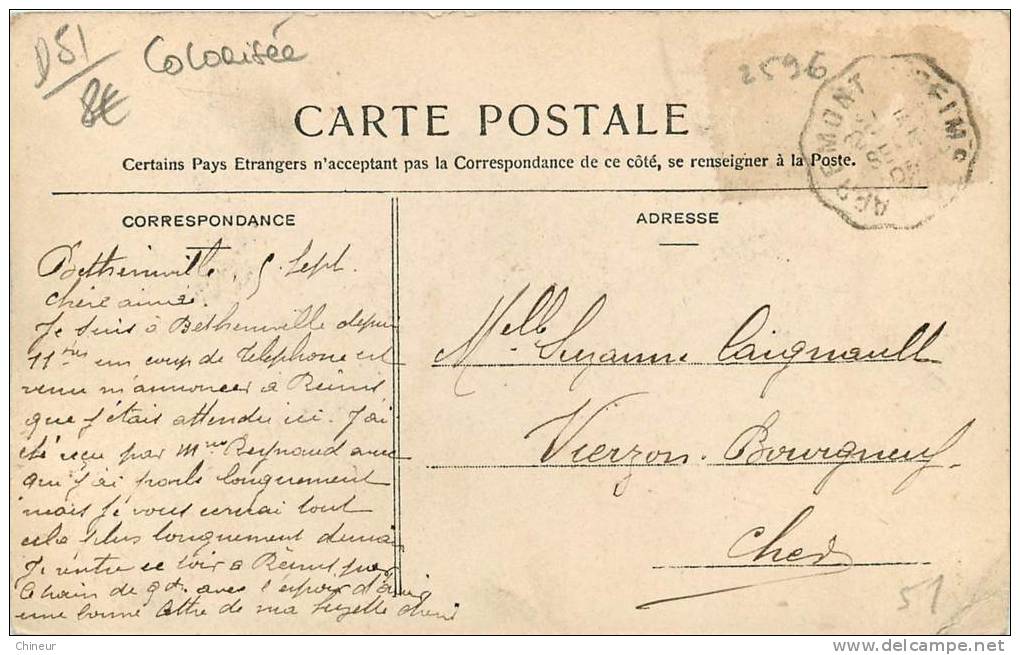 D51
8€
Colorisée
2596
APREMONT
REIMS
CARTE POSTALE
Certains Pays Etrangers n'acceptant pas la Correspondance de ce côté, se renseigner à la Poste.
CORRESPONDANCE
Betheniville, 5 Sept.
chère aimée.
Je suis à Betheniville depuis
11h un coup de telephone est
venu m'annoncer à Reims
que j'étais attendu ici. J'ai
été reçu par Mme Reynaud avec
qui j'ai parlé longuement
mais je vous écrirai tout
cela plus longuement demain
Je rentre ce soir à Reims par
le train de 9h avec l'espoir d'avoir
une bonne lettre de ma Suzette chérie
ADRESSE
Melle Suzanne Caignault
Vierzon-Bourgneuf
Cher
51
Chineur
www.delcampe.net